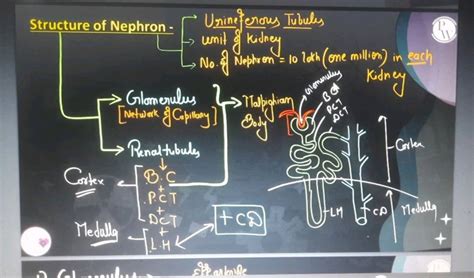 Structure of Nephron -
Urineferous Tubules
unit of Kidney
No. of Nephron = 10 lakh (one million) in each Kidney
Glomerulus
[Network of Capillary]
Malpighian Body
Renal-tubules
Cortex
B.C
+
PCT
+
DCT
+
L.H
Medulla
+ CD
Glomerulus
BC
PCT
DCT
LH
CD
Cortex
Medulla
Glomerulus